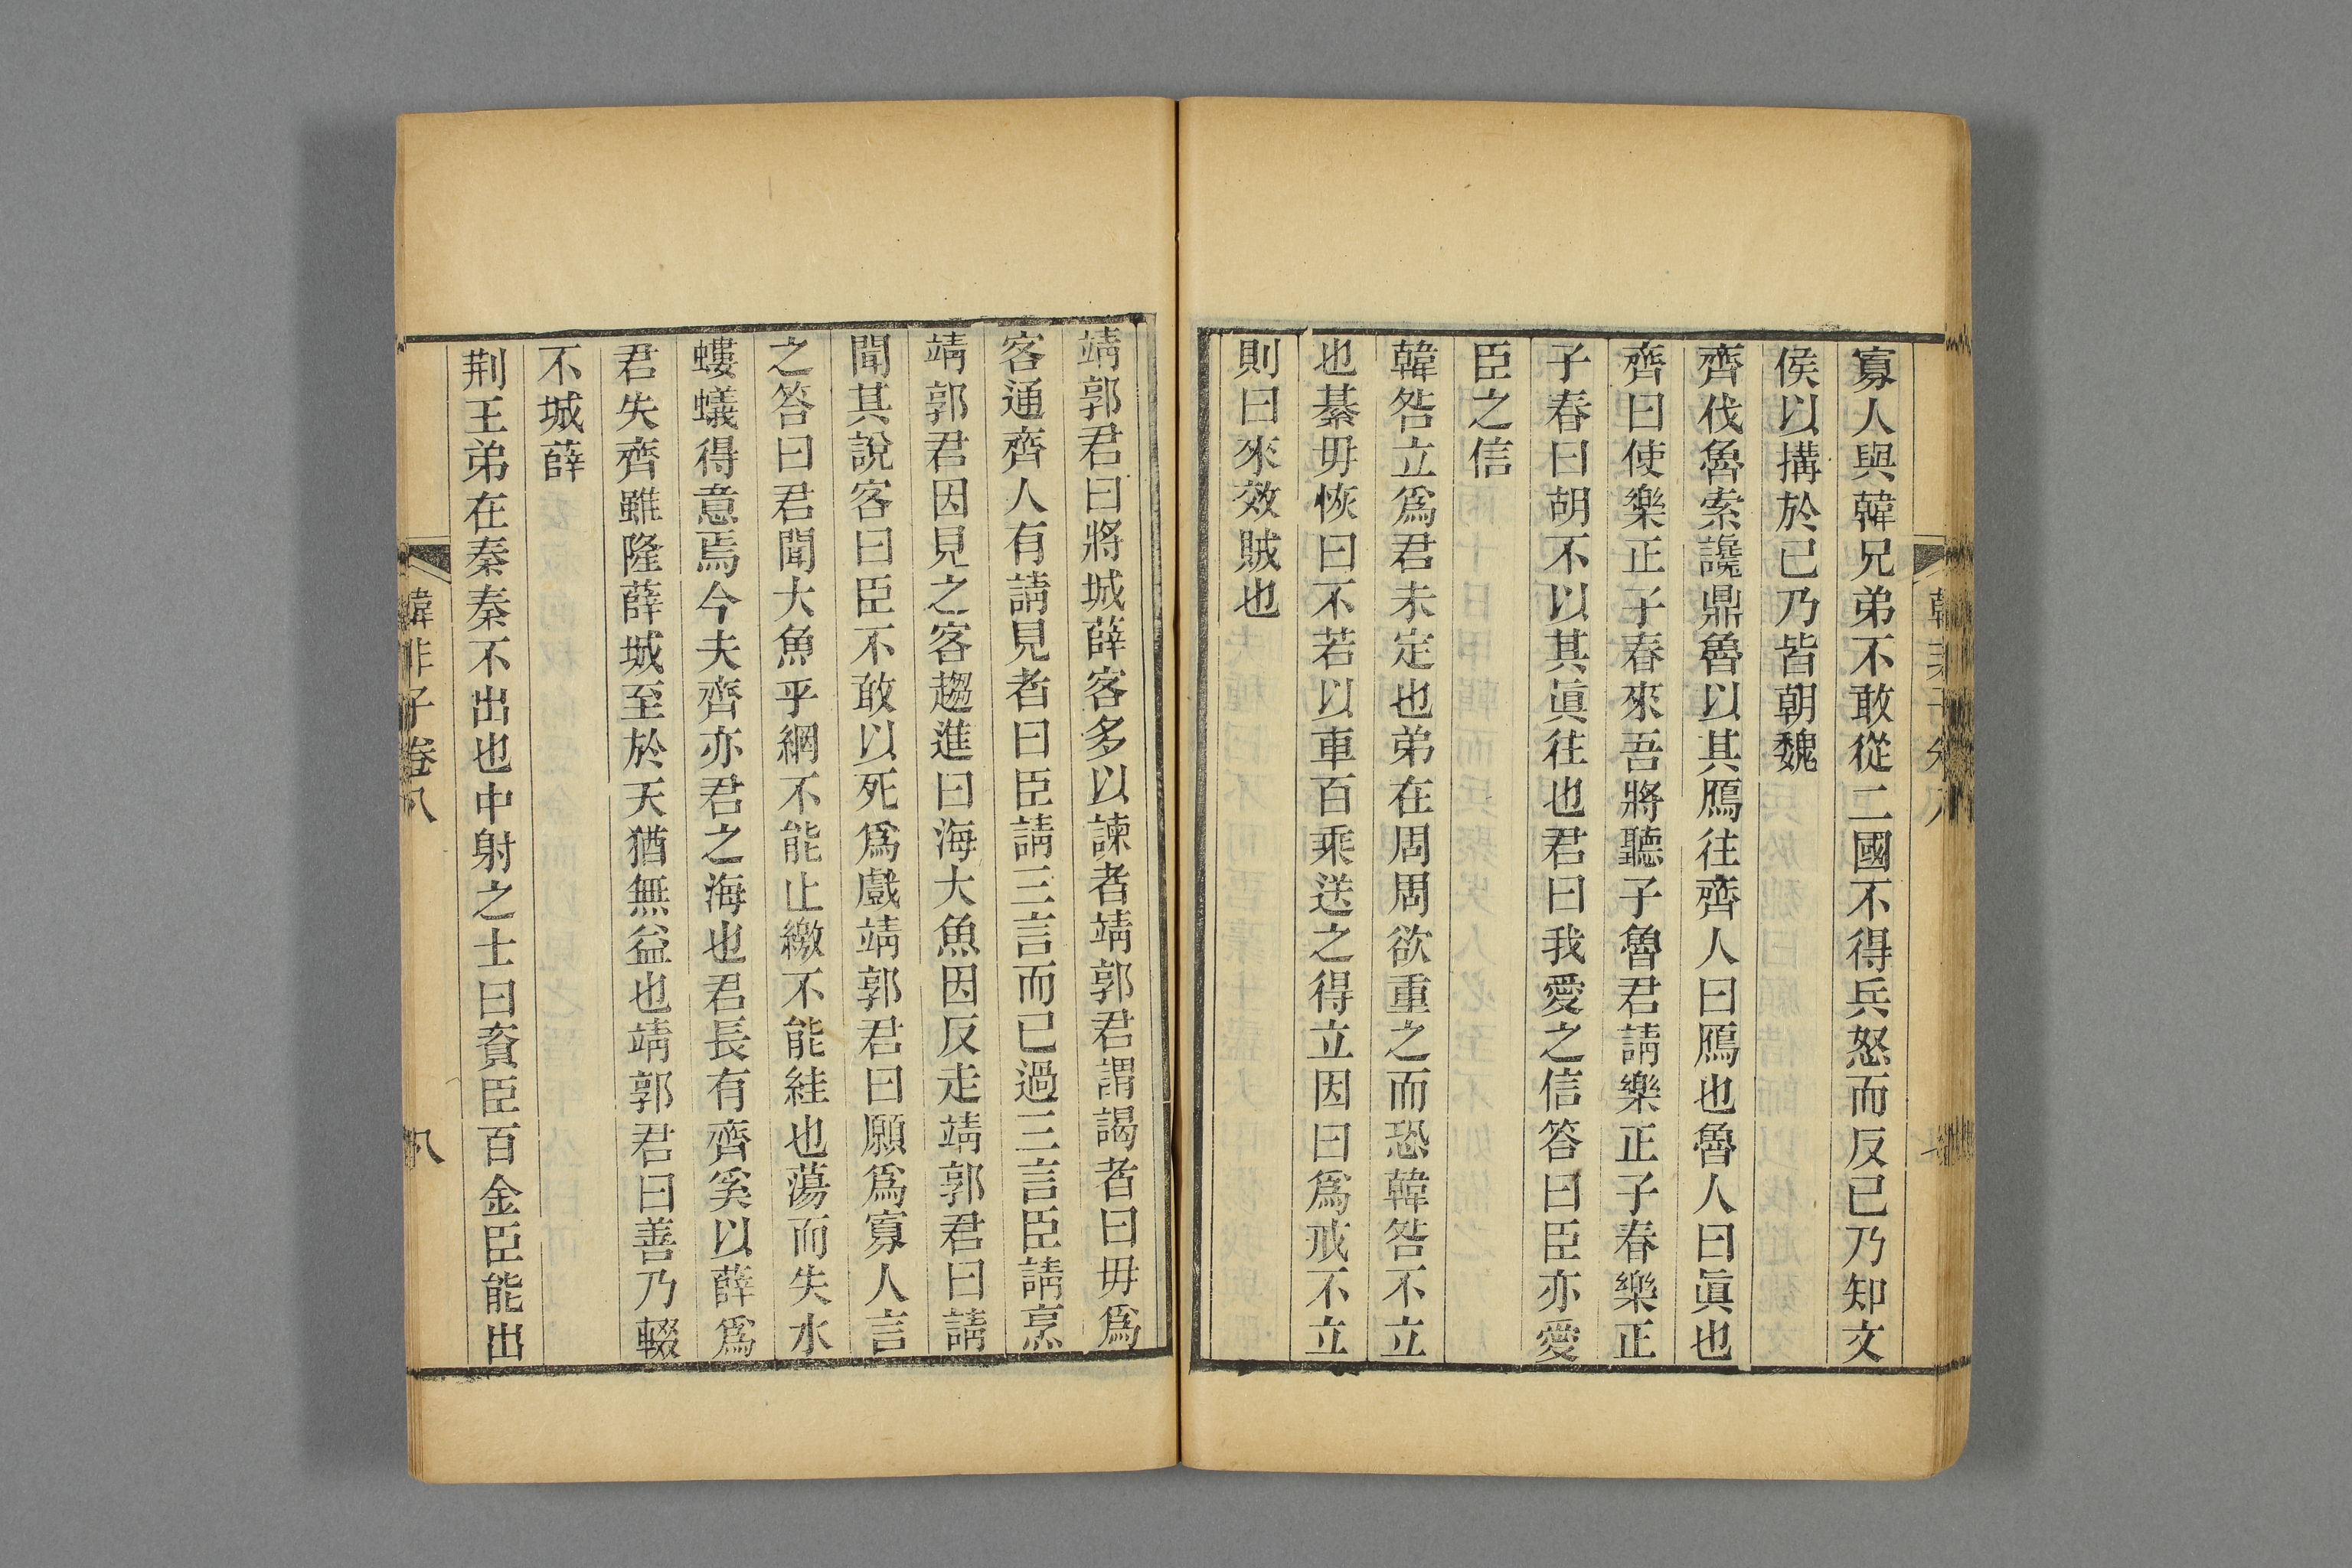 寡人與韓兄弟不敢從二國不得兵怒而反已乃知文
侯以搆於已乃皆朝魏
齊伐魯索讒鼎魯以其鴈往齊人曰鴈也魯人曰眞也
齊曰使樂正子春來吾將聽子魯君請樂正子春樂正
子春曰胡不以其眞往也君曰我愛之信答曰臣亦愛
臣之信
韓咎立爲君未定也弟在周周欲重之而恐韓咎不立
也綦毋恢曰不若以車百乘送之得立因曰爲戒不立
則曰來效賊也
靖郭君曰將城薛客多以諫者靖郭君謂謁者曰毋爲
客通齊人有請見者曰臣請三言而已過三言臣請烹
靖郭君因見之客趨進曰海大魚因反走靖郭君曰請
聞其說客曰臣不敢以死爲戲靖郭君曰願爲寡人言
之答曰君聞大魚乎網不能止繳不能絓也蕩而失水
螻蟻得意焉今夫齊亦君之海也君長有齊奚以薛爲
君失齊雖隆薛城至於天猶無益也靖郭君曰善乃輟
不城薛
荆王弟在秦秦不出也中射之士曰資臣百金臣能出
韓非子卷八
八